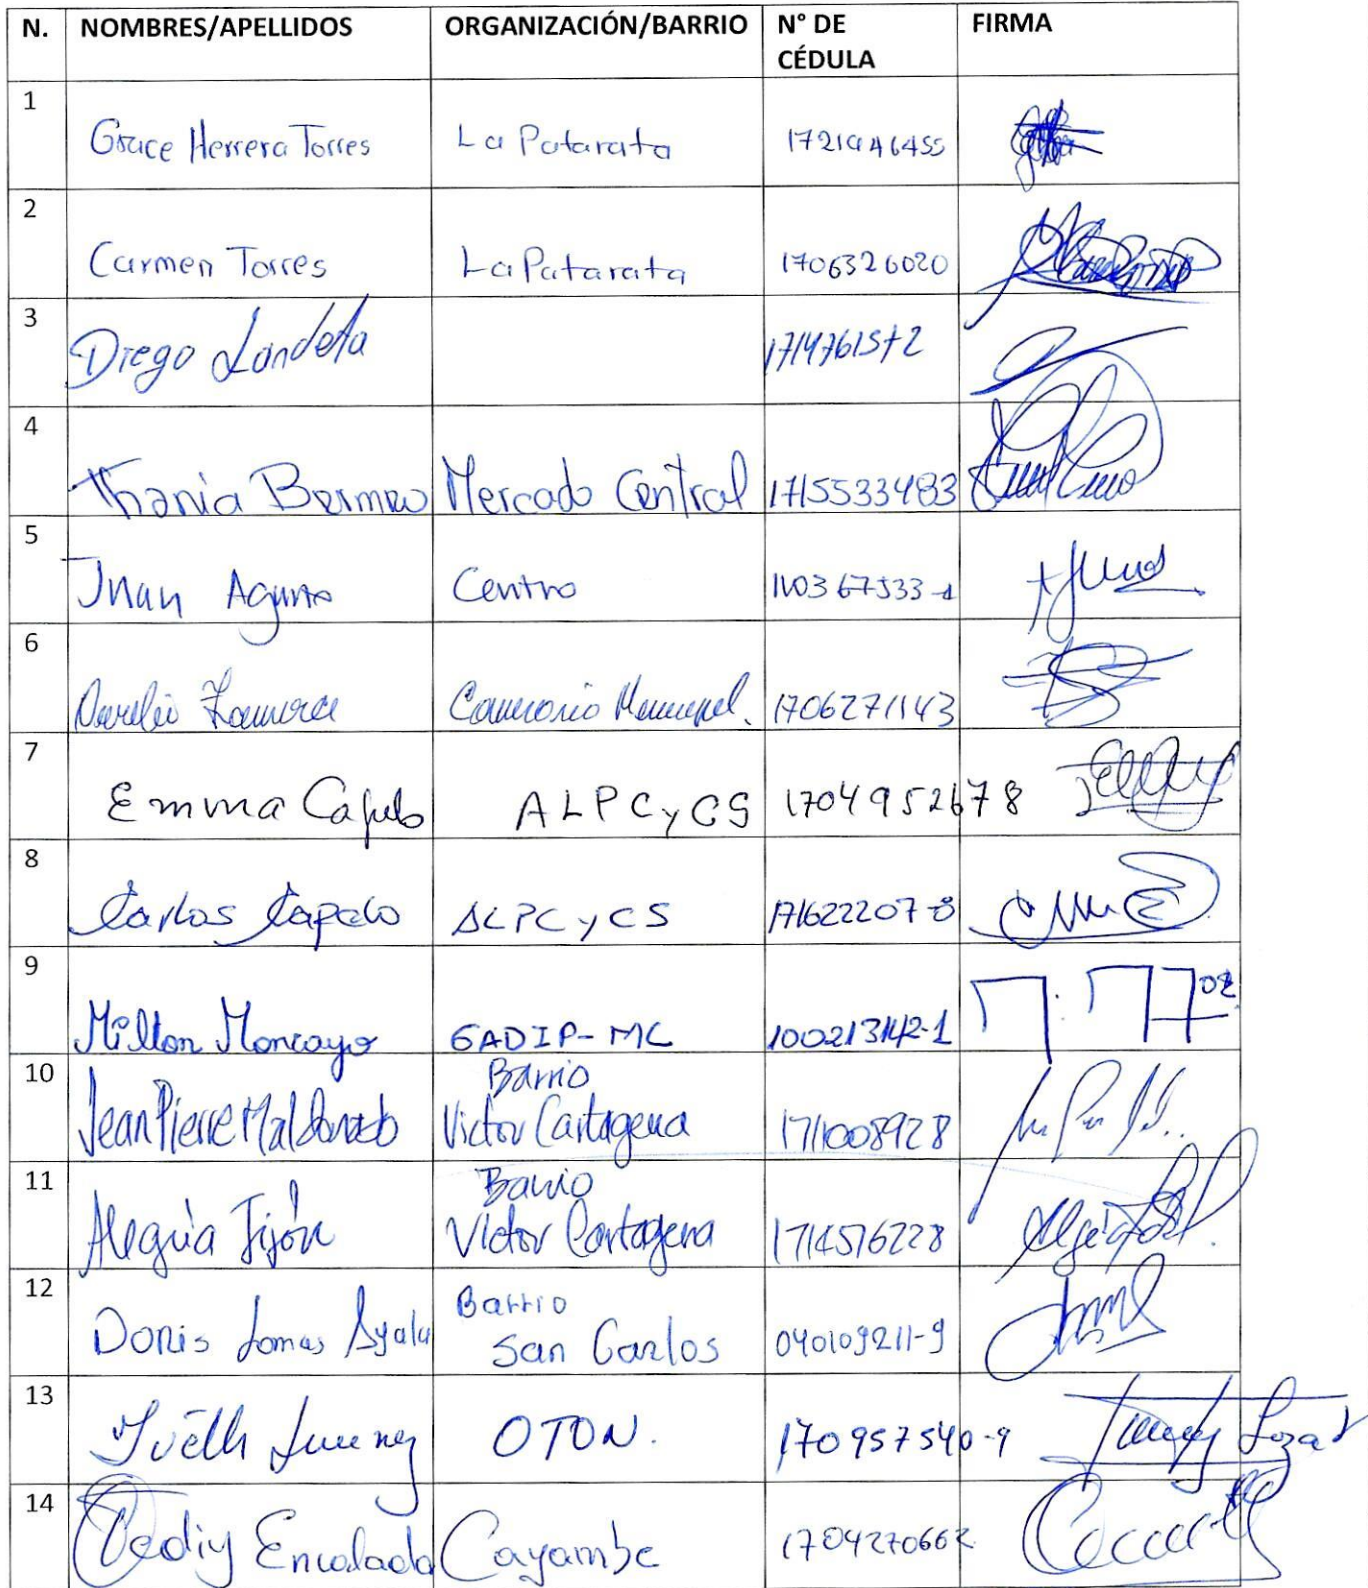 N. NOMBRES/APELLIDOS ORGANIZACIÓN/BARRIO N° DE CÉDULA FIRMA
1 Grace Herrera Torres La Patarata
2 Carmen Torres La Patarata 1706326020
3 Diego Landeta 1714761572
4 Thania Bermeo Mercado Central 1715533483
5 Juan Centro
6 Aurelio Zamora
7 Emma Capelo ALPCyCS 1704952678
8 Carlos Capelo ALPCyCS 171622207-8
9 Milton Moncayo GADIP-MC 100213142-1
10 Jean Pierre Maldonado Barrio Victor Cartagena 1711008928
11 Alegria Tijón Barrio Victor Cartagena 1714576228
12 Donis Lomas Ayala Barrio San Carlos 040109211-9
13 OTON. 170957540-9
14 Encalada Cayambe 1704270662